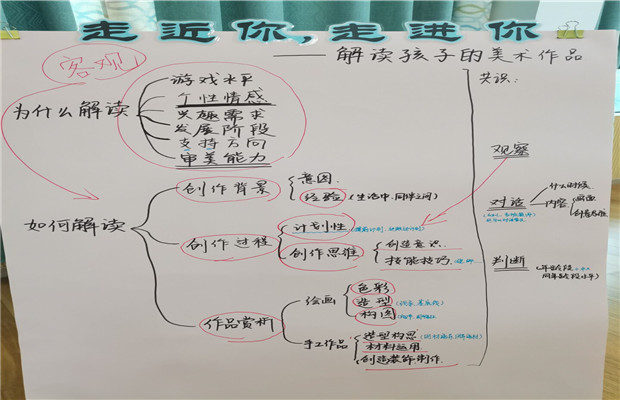 走近你,走进你
——解读孩子的美术作品
客观
为什么解读
游戏水平
个性情感
兴趣需求
发展阶段
支持方向
审美能力
如何解读
创作背景
意图
经验(生活中.同学之间)
创作过程
计划性
创作思维
创造意识
技能技巧
作品赏析
绘画
色彩
造型
构图
手工作品
造型构思
材料运用
创造装饰制作
共识:
观察
对话
内容
判断